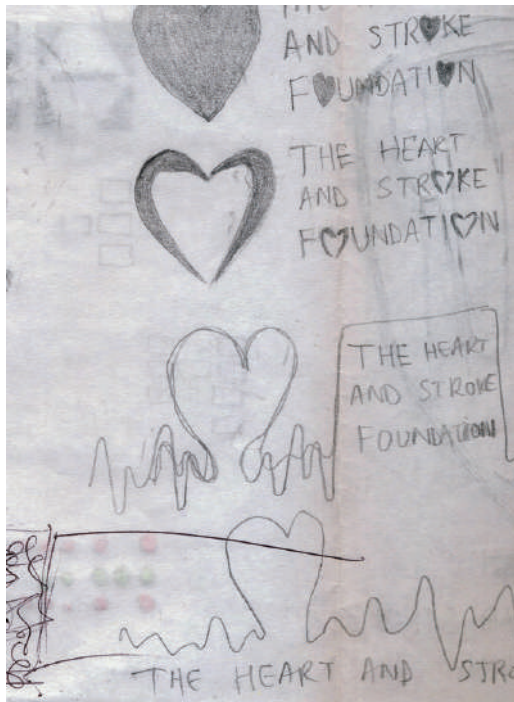 AND STR♥KE
F♥UNDATI♥N
THE HEART
AND STR♡KE
F♡UNDATI♡N
THE HEART
AND STROKE
FOUNDATION
THE HEART AND STRO